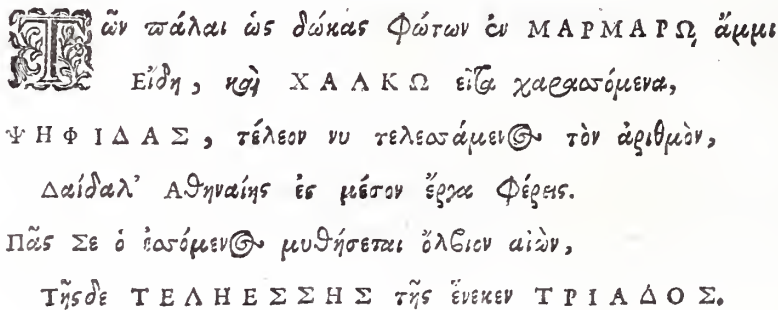 Τῶν πάλαι ὡς δώκας Φώτων ἐν ΜΑΡΜΑΡΩ, ἄμμι
Εἴδη, καὶ ΧΑΛΚΩ εἶτα χαρασσόμενα,
ΨΗΦΙΔΑΣ, τέλεον νυ τελεσσάμενος τὸν ἀριθμὸν,
Δαίδαλ' Αθηναίης ἐς μέσον ἔργα Φέρεις.
Πᾶς Σε ὁ ἐσσόμενος μυθήσεται ὄλβιον αἰὼν,
Τῆςδε ΤΕΛΗΕΣΣΗΣ τῆς ἕνεκεν ΤΡΙΑΔΟΣ.